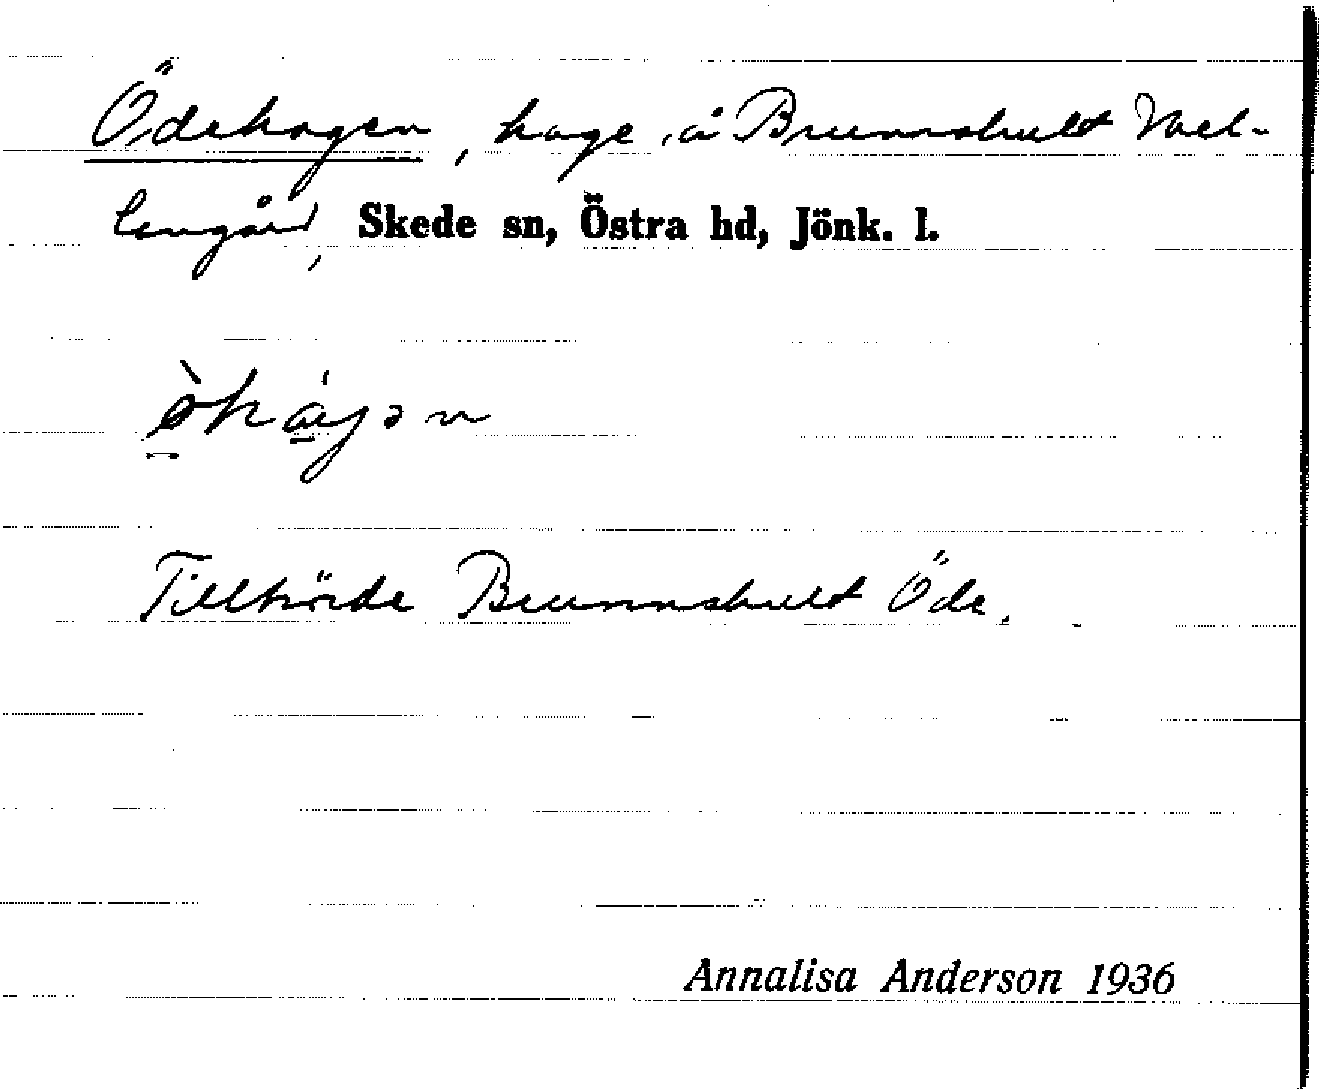 Ödehagen, hage å Brunnshult Mel-
langård, Skede sn, Östra hd, Jönk. l.
Tillhörde Brunnshult Öde.
Annalisa Anderson 1936